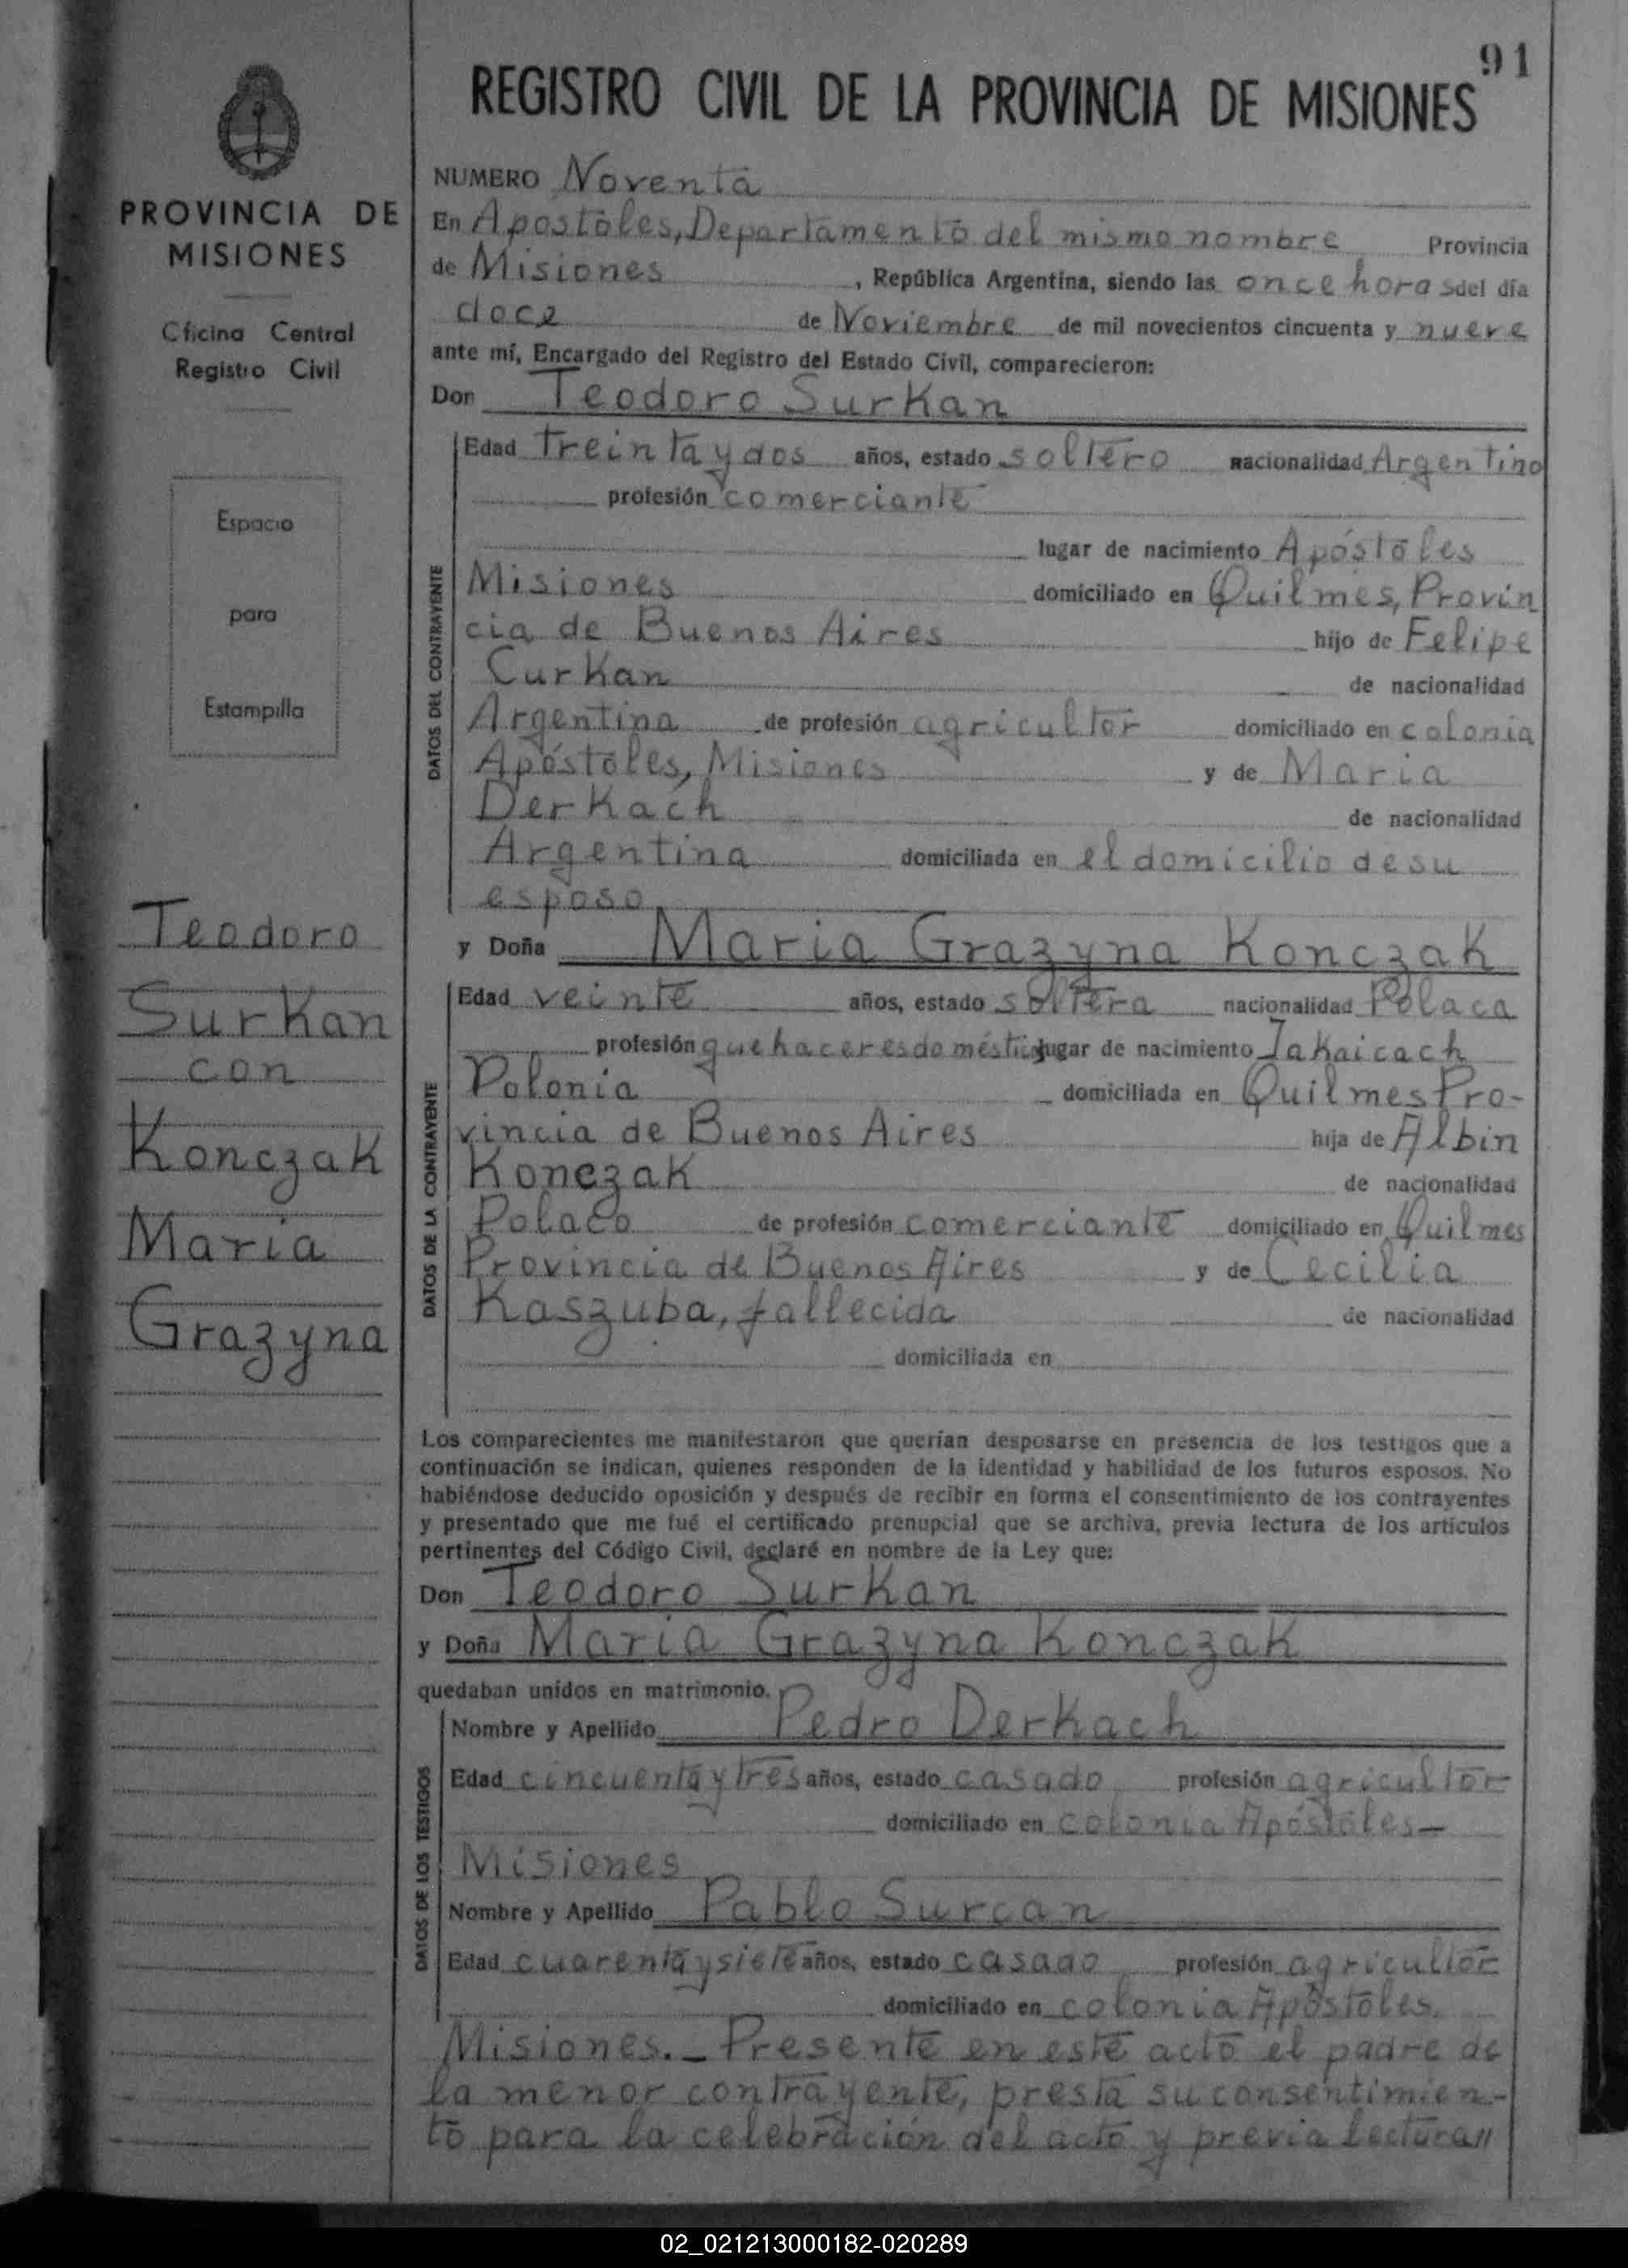 91
REGISTRO CIVIL DE LA PROVINCIA DE MISIONES
PROVINCIA DE
MISIONES
Oficina Central
Registro Civil
Espacio
para
Estampilla
Teodoro
Surkan
con
Konczak
Maria
Grazyna
NUMERO Noventa
En Apostoles, Departamento del mismo nombre Provincia
de Misiones, República Argentina, siendo las once horas del día
doce de Noviembre de mil novecientos cincuenta y nueve
ante mí, Encargado del Registro del Estado Civil, comparecieron:
Don Teodoro Surkan
DATOS DEL CONTRAYENTE
Edad treinta y dos años, estado soltero nacionalidad Argentino
profesión comerciante
lugar de nacimiento Apóstoles
Misiones domiciliado en Quilmes, Provin
cia de Buenos Aires hijo de Felipe
Curkan de nacionalidad
Argentina de profesión agricultor domiciliado en colonia
Apóstoles, Misiones y de Maria
Derkach de nacionalidad
Argentina domiciliada en el domicilio de su
esposo
y Doña Maria Grazyna Konczak
DATOS DE LA CONTRAYENTE
Edad veinte años, estado soltera nacionalidad Polaca
profesión quehaceres domésticos lugar de nacimiento
Polonia domiciliada en Quilmes Pro-
vincia de Buenos Aires hija de Albin
Konczak de nacionalidad
Polaco de profesión comerciante domiciliado en Quilmes
Provincia de Buenos Aires y de Cecilia
Kaszuba, fallecida de nacionalidad
domiciliada en
Los comparecientes me manifestaron que querían desposarse en presencia de los testigos que a
continuación se indican, quienes responden de la identidad y habilidad de los futuros esposos. No
habiéndose deducido oposición y después de recibir en forma el consentimiento de los contrayentes
y presentado que me fué el certificado prenupcial que se archiva, previa lectura de los artículos
pertinentes del Código Civil, declaré en nombre de la Ley que:
Don Teodoro Surkan
y Doña Maria Grazyna Konczak
quedaban unidos en matrimonio.
DATOS DE LOS TESTIGOS
Nombre y Apellido Pedro Derkach
Edad cincuenta y tres años, estado casado profesión agricultor
domiciliado en colonia Apóstoles-
Misiones
Nombre y Apellido Pablo Surcan
Edad cuarenta y siete años, estado casado profesión agricultor
domiciliado en colonia Apóstoles.
Misiones.- Presente en este acto el padre de
la menor contrayente, presta su consentimien-
to para la celebración del acto y previa lectura//
02_021213000182-020289